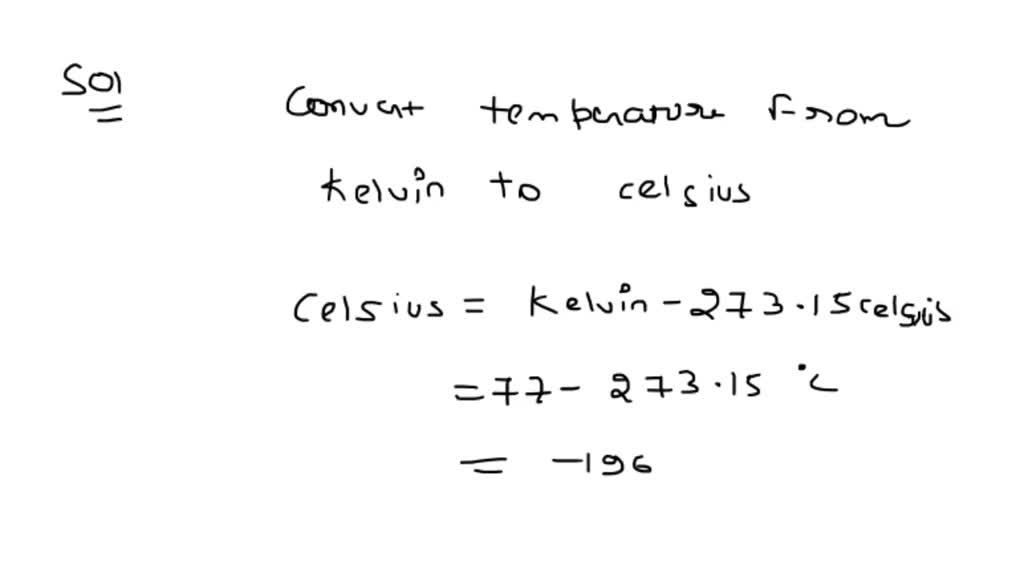 Sol
Convert temperature From
Kelvin to celsius
Celsius = Kelvin - 273.15 celsius
= 77 - 273.15 °C
= -196